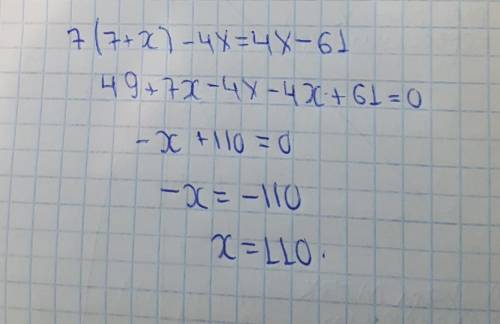 7(7+x)-4x=4x-61
49+7x-4x-4x+61=0
-x+110=0
-x=-110
x=110.